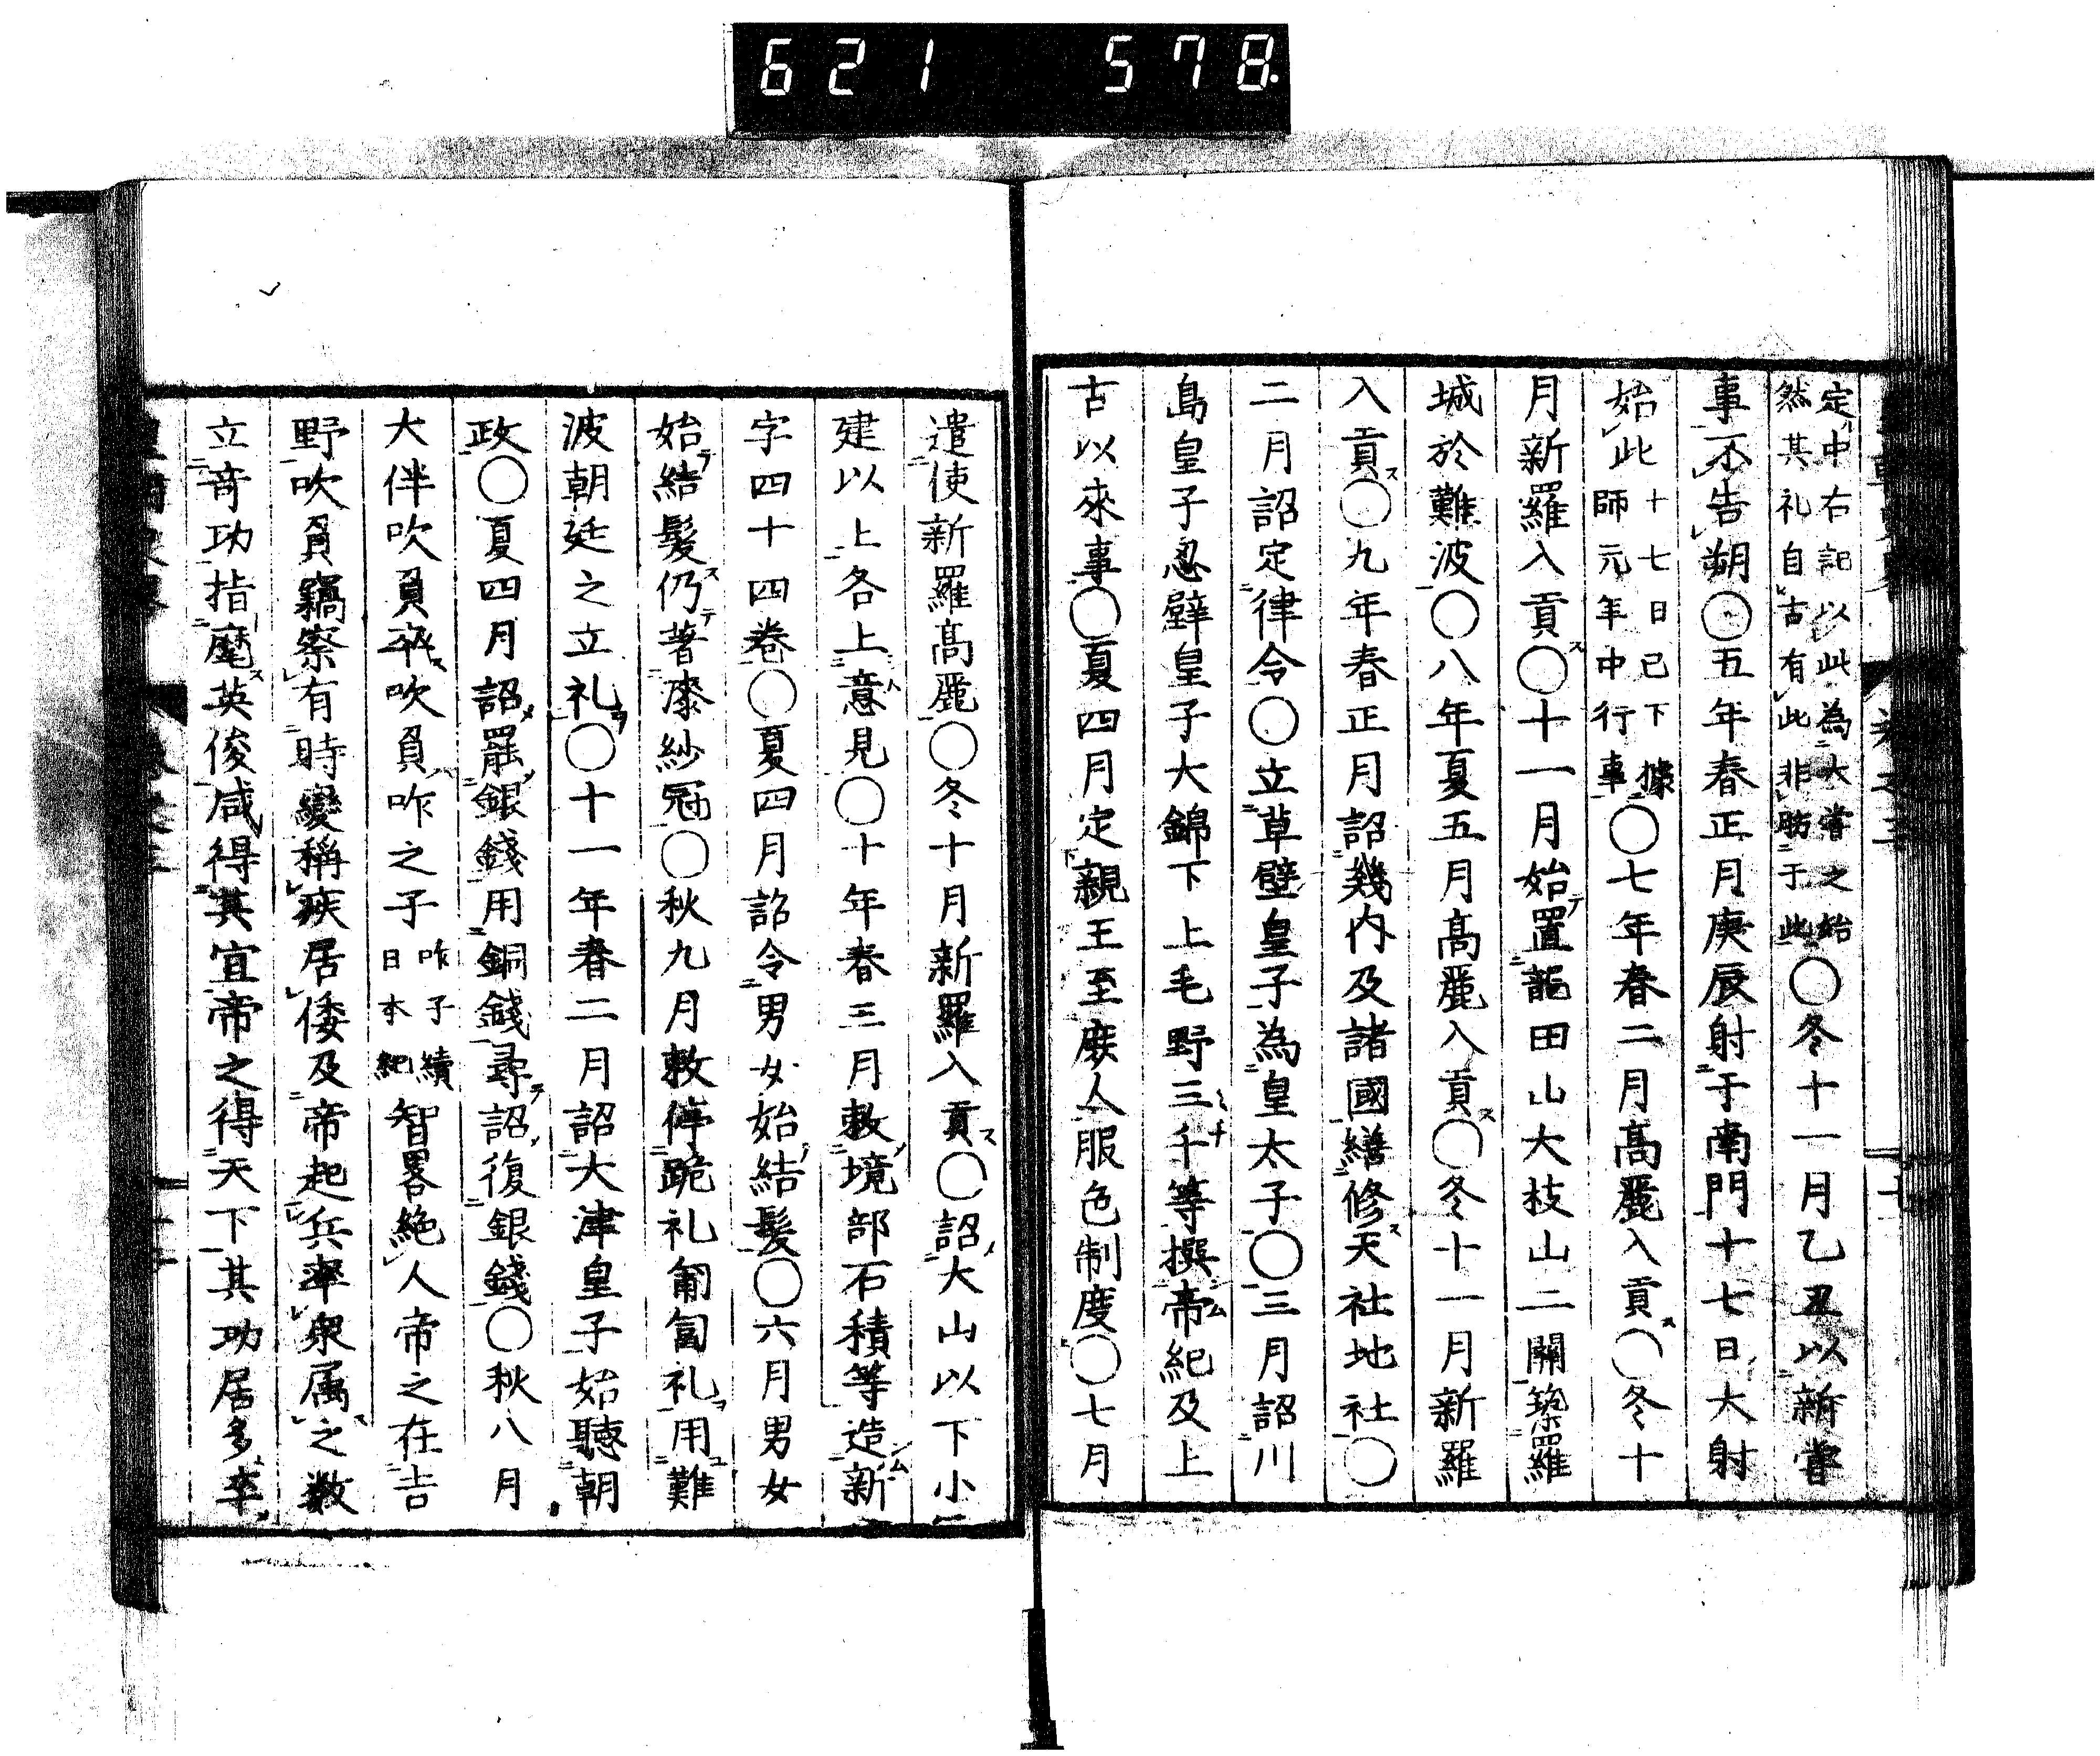 621 578.
定中右記以此為大嘗之始
然其礼自古有此非昉于此〇冬十一月乙丑以新嘗
事不告朔〇五年春正月庚辰射于南門十七日大射
始此十七日已下據
師元年中行事〇七年春二月髙麗入貢〇冬十
月新羅入貢〇十一月始置龍田山大枝山二關築羅
城於難波〇八年夏五月髙麗入貢〇冬十一月新羅
入貢〇九年春正月詔幾内及諸國繕修天社地社〇
二月詔定律令〇立草壁皇子為皇太子〇三月詔川
島皇子忍壁皇子大錦下上毛野三千等撰帝紀及上
古以來事〇夏四月定親王至庶人服色制度〇七月
遣使新羅髙麗〇冬十月新羅入貢〇詔大山以下小
建以上各上意見〇十年春三月敕境部石積等造新
字四十四卷〇夏四月詔令男女始結髮〇六月男女
始結髮仍著漆紗冠〇秋九月敕停跪礼匍匐礼用難
波朝廷之立礼〇十一年春二月詔大津皇子始聽朝
政〇夏四月詔罷銀錢用銅錢尋詔復銀錢〇秋八月
大伴吹負卒吹負咋之子咋子續
日本紀智畧絶人帝之在吉
野吹負竊察有時變稱疾居倭及帝起兵率衆属之数
立竒功指麾英俊咸得其宜帝之得天下其功居多率